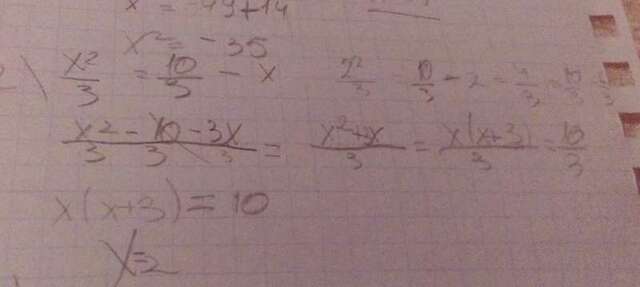 x² = -35
x²/3 = 10/3 - x 2²/3 = 10/3 - 2 = 4/3
x²/3 - 10/3 - 3x/3 = x²+x/3 = x(x+3)/3 = 10/3
x(x+3) = 10
x=2